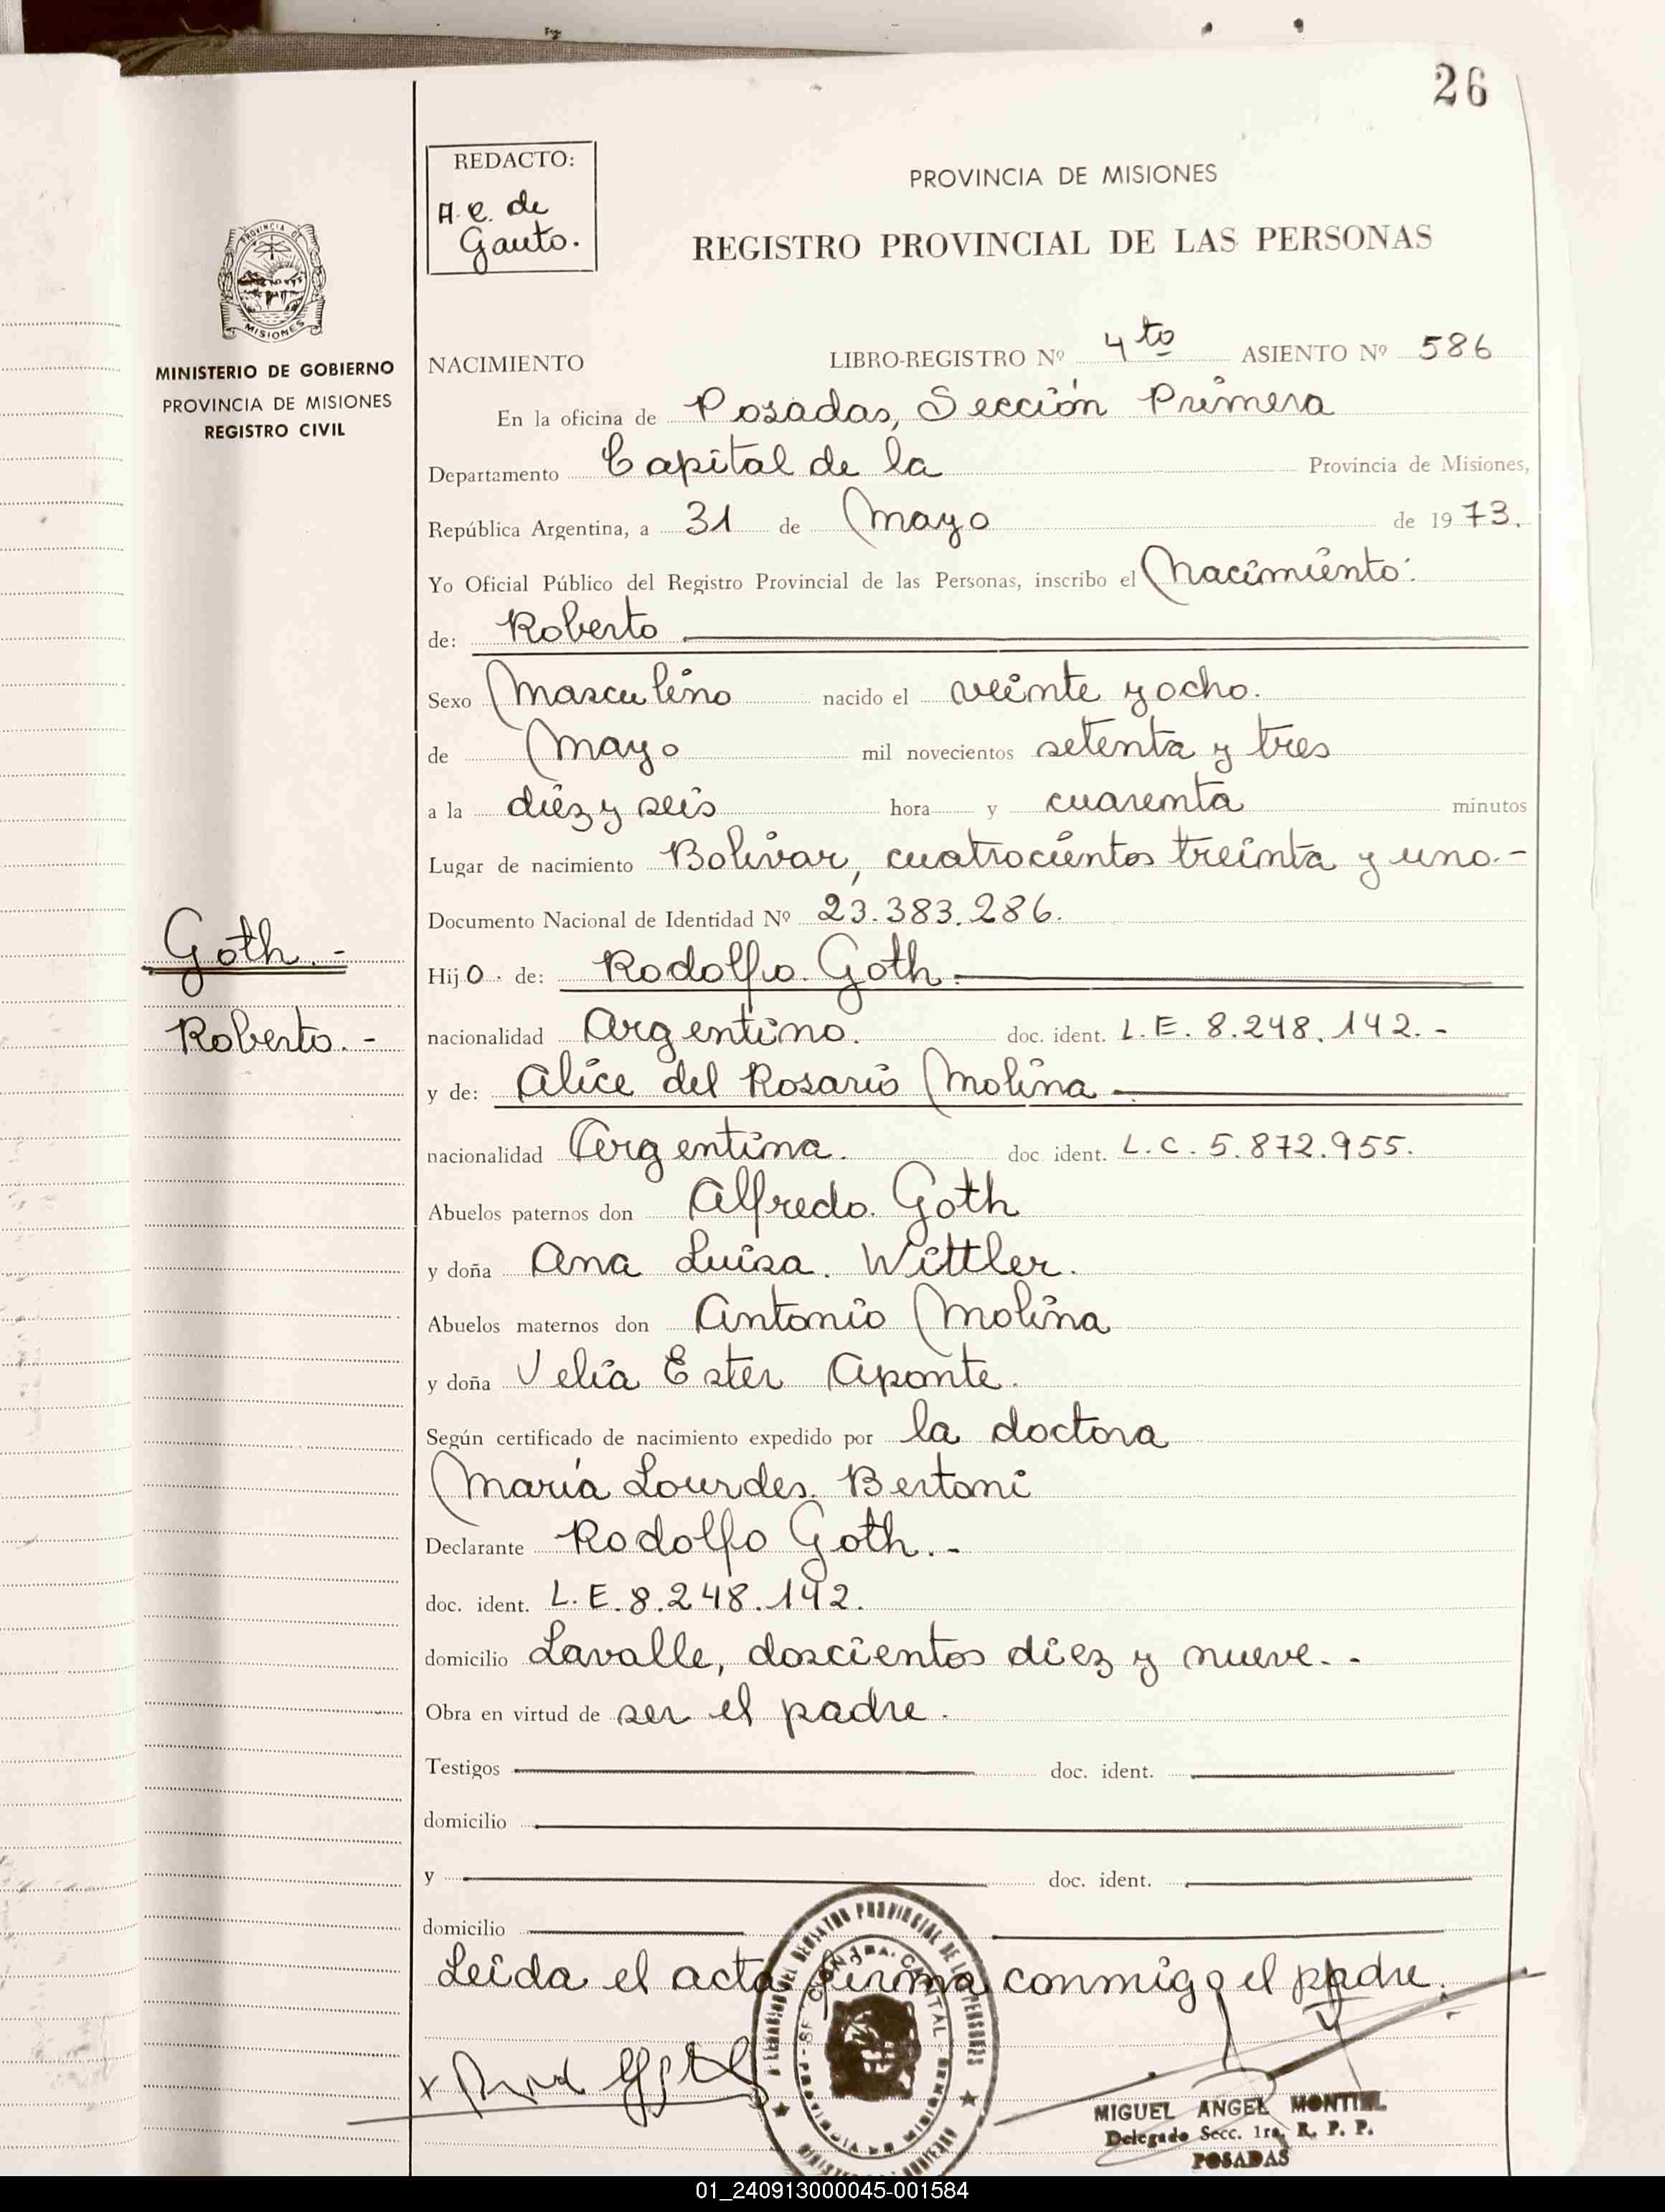 26
REDACTO:
A. C. de
Gauto.
PROVINCIA DE MISIONES
REGISTRO PROVINCIAL DE LAS PERSONAS
PROVINCIA DE
MISIONES
MINISTERIO DE GOBIERNO
PROVINCIA DE MISIONES
REGISTRO CIVIL
NACIMIENTO LIBRO-REGISTRO Nº 4to ASIENTO Nº 586
En la oficina de Posadas, Sección Primera
Departamento Capital de la Provincia de Misiones,
República Argentina, a 31 de Mayo de 1973.
Yo Oficial Público del Registro Provincial de las Personas, inscribo el Nacimiento:
de: Roberto
Sexo Masculino nacido el veinte y ocho.
de Mayo mil novecientos setenta y tres
a la diez y seis hora y cuarenta minutos
Lugar de nacimiento Bolívar, cuatrocientos treinta y uno.-
Documento Nacional de Identidad Nº 23.383.286.
Goth.-
Roberto.-
Hijo. de: Rodolfo Goth.
nacionalidad Argentino. doc. ident. L.E. 8.248.142.-
y de: Alice del Rosario Molina
nacionalidad Argentina. doc. ident. L.C. 5.872.955.
Abuelos paternos don Alfredo Goth
y doña Ana Luisa. Wittler.
Abuelos maternos don Antonio Molina
y doña Velia Ester Aponte.
Según certificado de nacimiento expedido por la doctora
María Lourdes Bertoni
Declarante Rodolfo Goth.-
doc. ident. L.E. 8.248.142.
domicilio Lavalle, doscientos diez y nueve.-
Obra en virtud de ser el padre.
Testigos doc. ident.
domicilio
y doc. ident.
domicilio
Leída el acta firma conmigo el padre.
MIGUEL ANGEL MONTIEL
Delegado Secc. 1ra. R. P. P.
POSADAS
01_240913000045-001584